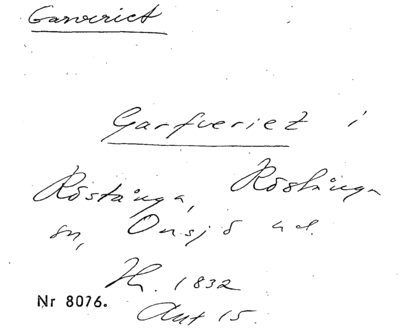 Garveriet
Garfveriet i
Röstånga, Röstånga
sn, Onsjö hd.
Hs. 1832
Nr 8076.
Akt 15.